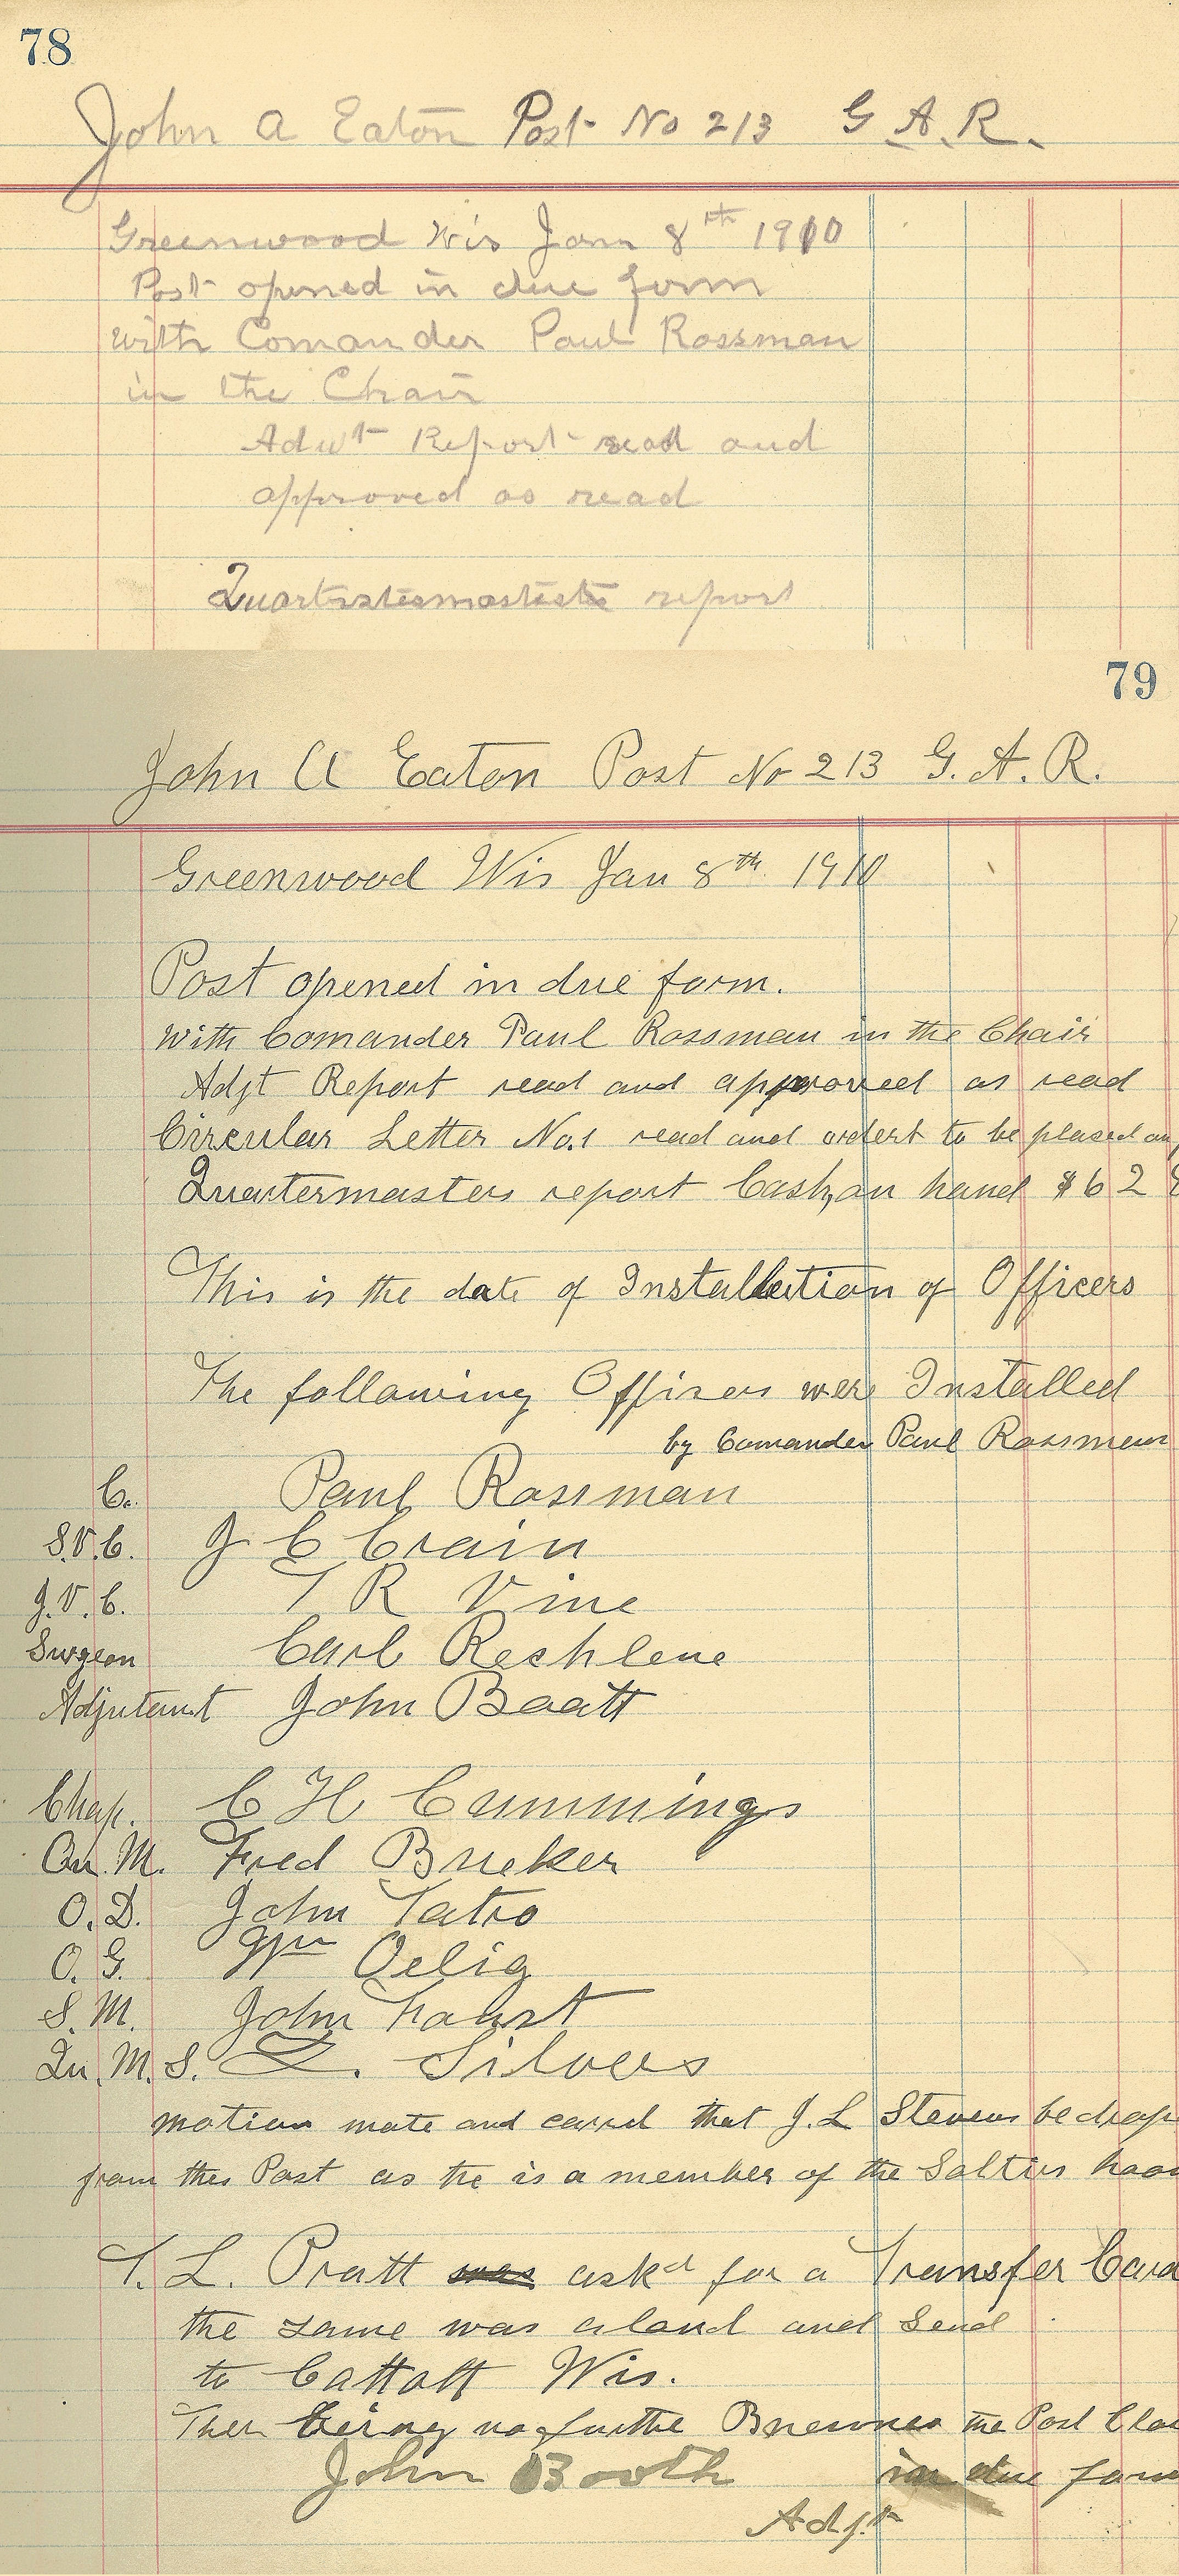 78
John A Eaton Post No 213 G A. R.
Greenwood Wis Jan 8th 1910
Post opened in due form
with Comander Paul Rossman
in the Chair
Adut Report read and
approved as read
report
79
John A Eaton Post No 213 G. A. R.
Greenwood Wis Jan 8th 1910
Post opened in due form.
With Comander Paul Rossman in the Chair
Adjt Report read and approved as read
Circular Letter No.1 read and ordert to be plased on
Quartermasters report Cash, on hand $62
This is the date of Installation of Officers
The following Officers were Installed
by Comander Paul Rossman
C. Paul Rossman
S.V.C. J C Crain
J.V.C. T R Vine
Surgeon Carl Reshlene
Adjutant John Baatt
Chap. C H Cummings
Qu. M. Fred Brucker
O. D. John Tatro
O. G. Wm Oelig
S. M. John
Qu. M. S. Silvers
motion mate and carrd that J. L Stevens be drop
from thes Post as he is a member of the
T. L. Pratt askd for a Transfer Card
the same was and Send
to Cattott Wis.
Ther being no furthe the Post Clos
John Booth in due form
Adjt